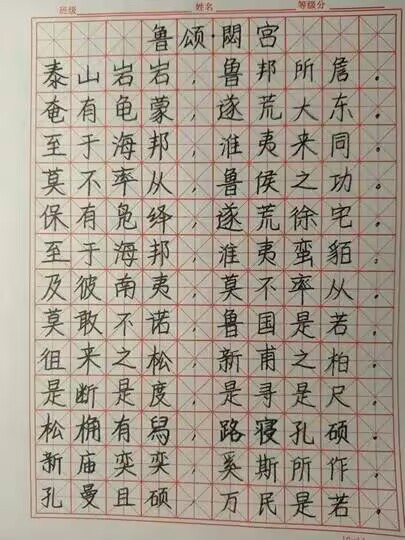 班级 姓名 等级分
鲁颂·閟宫
泰山岩岩，鲁邦所詹。
奄有龟蒙，遂荒大东。
至于海邦，淮夷来同。
莫不率从，鲁侯之功。
保有凫绎，遂荒徐宅。
至于海邦，淮夷蛮貊。
及彼南夷，莫不率从。
莫敢不诺，鲁国是若。
徂来之松，新甫之柏。
是断是度，是寻是尺。
松桷有舄，路寝孔硕。
新庙奕奕，奚斯所作。
孔曼且硕，万民是若。